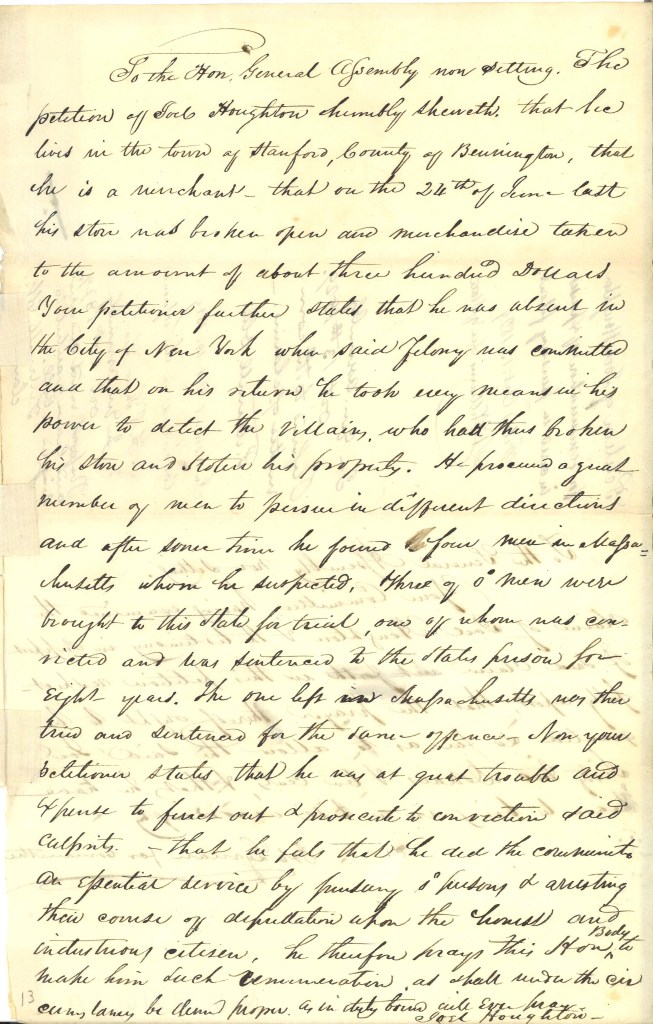 To the Hon. General Assembly now sitting. The
petition of Joel Houghton humbly sheweth. that he
lives in the town of Stanford, County of Bennington, that
he is a merchant – that on the 24th of June last
his store was broken open and merchandise taken
to the amount of about three hundred Dollars
Your petitioner further states that he was absent in
the City of New York when said felony was committed
and that on his return he took every means in his
power to detect the villains, who had thus broken
his store and stolen his property. He procured a great
number of men to persue in different directions
and after some time he found four men in Massa=
chusetts whom he suspected, three of sd men were
brought to this State for trial, one of whom was con-
victed and was sentenced to the States prison for
eight years. The one left in Massachusetts was there
tried and sentenced for the same offence – Now your
Petitioner states that he was at great trouble and
expense to ferret out & prosecute to conviction said
culprits. – that he feels that he did the community
an essential service by pursuing sd persons & arresting
their course of depredation upon the honest and
industrious citizen, he therefore prays this Hon. Body to
make him such remuneration as shall under the cir
cumstances be deemed proper. as in duty bound will Ever pray
Joel Houghton –
13